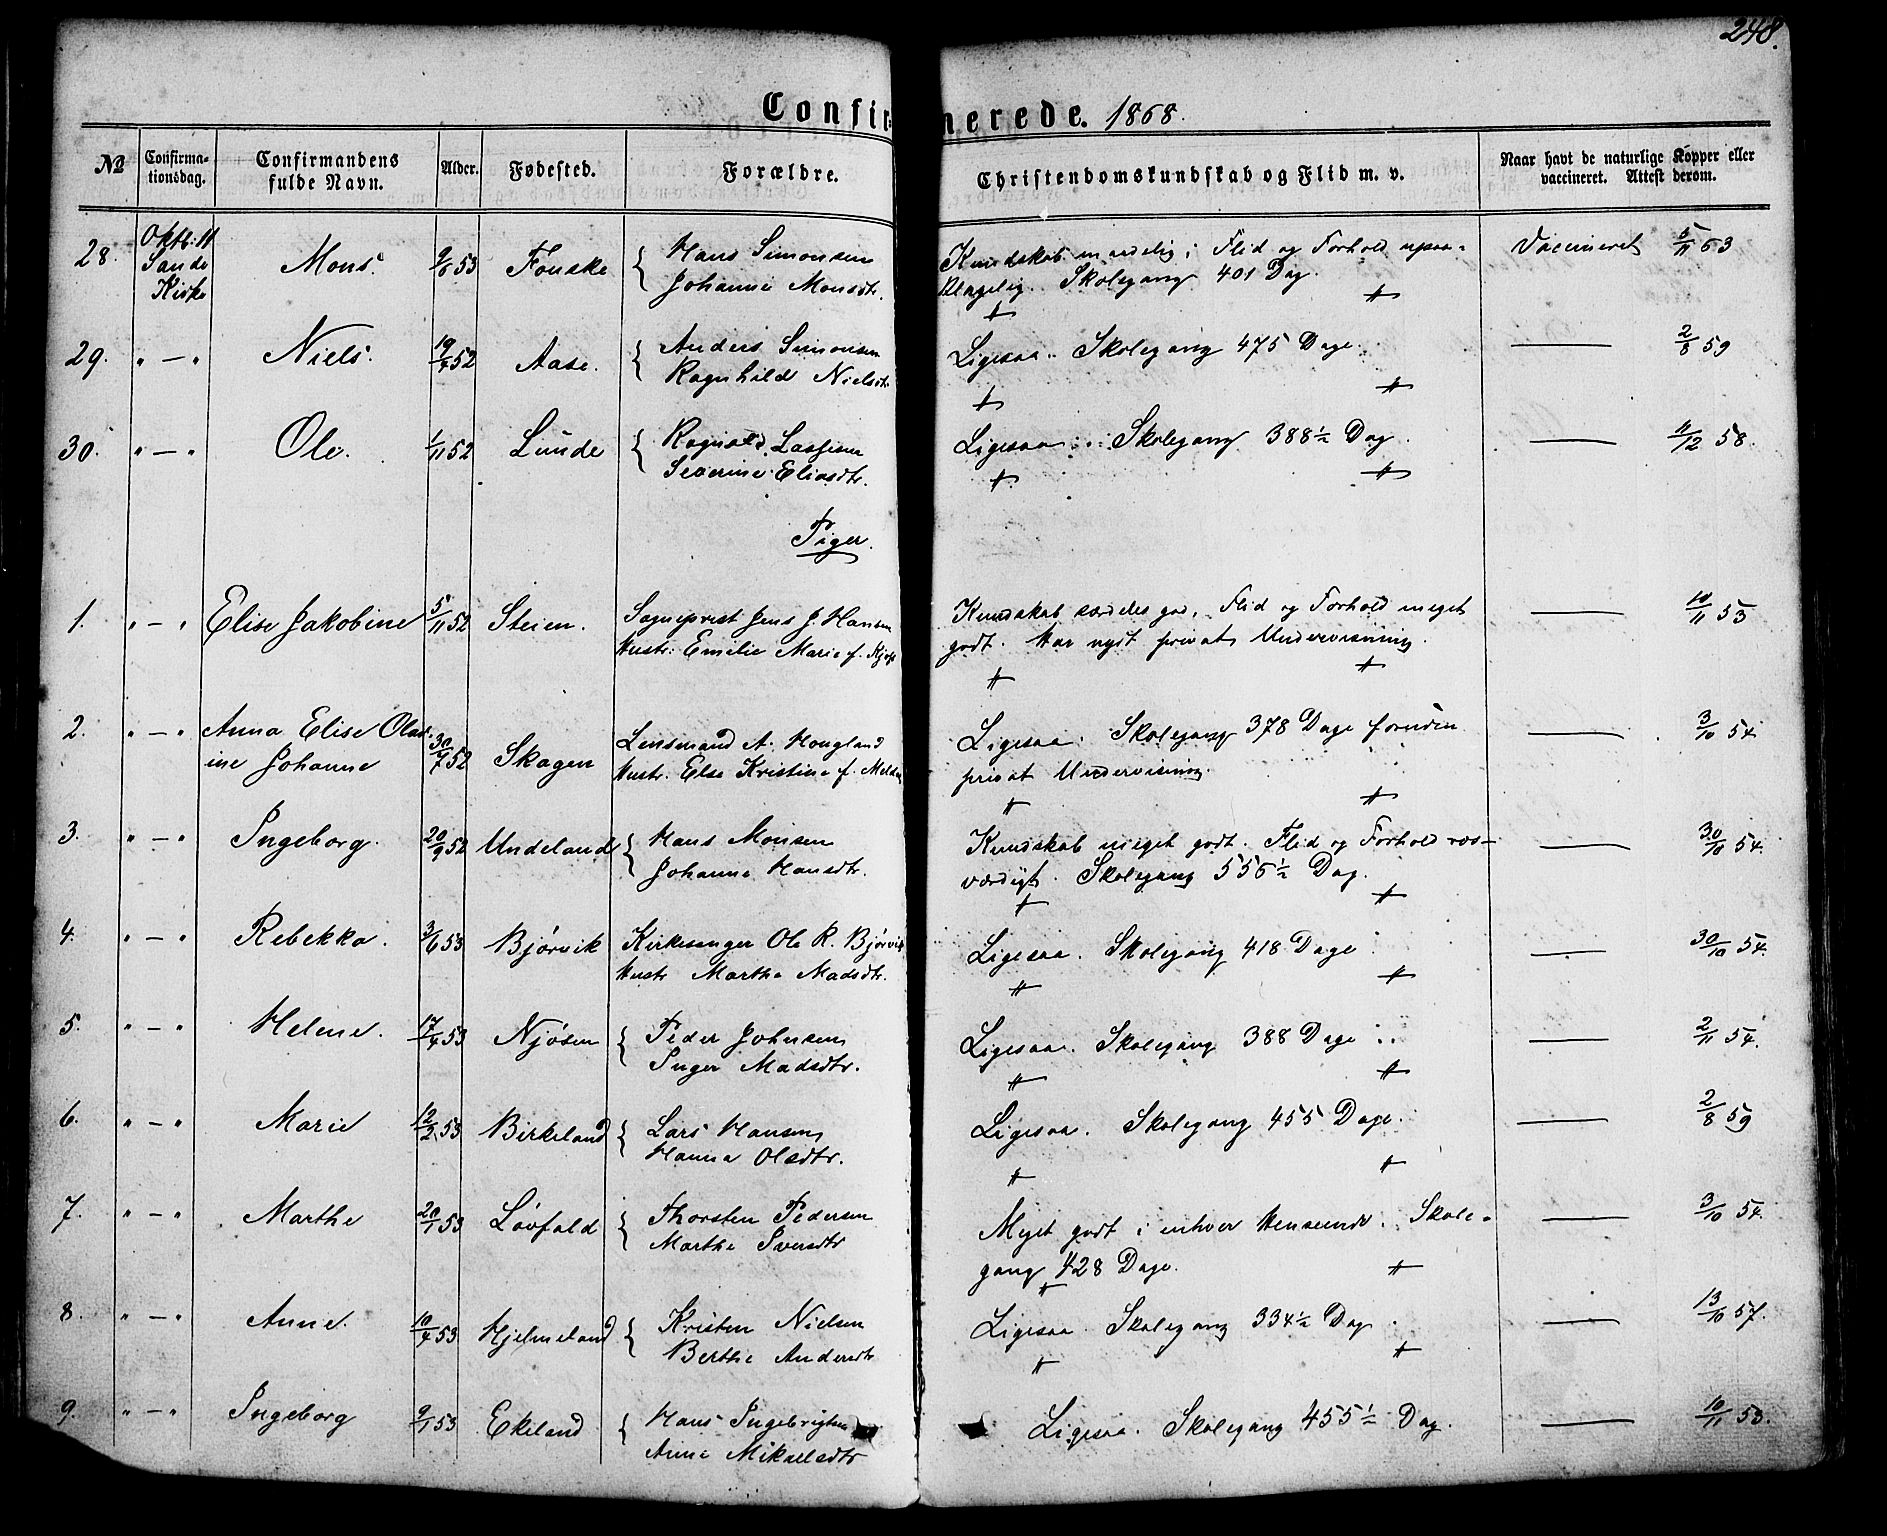 248.
Confirmerede. 1868.
No Confirmationsdag. Confirmandens fulde Navn. Alder. Fødested. Forældre. Christendomskundskab og Flid m. v. Naar havt de naturlige Kopper eller vaccineret. Attest derom.
28. Oktb. 11 Sande Kirke Mons. 9/6 53 Fonske { Hans Simonsen
Johanne Monsdtr. Kundskab maadelig; Flid og Forhold upaa-
klagelig. Skolegang 401 Dag. Vaccineret 5/11 63
29. " — " Niels. 19/7 52 Aase. { Anders Simonsen
Ragnhild Nielsdtr. Ligesaa. Skolegang 475 Dage. — 2/8 59
30. " — " Ole. 1/11 52 Lunde { Rognald Lassesen
Severine Eliasdtr. Ligesaa. Skolegang 388½ Dag. — 11/12 58.
Piger.
1. " — " Elise Jakobine 5/11 52 Steien. Sogneprest Jens J. Hansen
Hustr: Emilie Marie f. Kundskab særdeles god. Flid og Forhold meget
godt. Har nydt privat Undervisning. — 10/11 53
2. " — " Anna Elise Olav-
ine Johanne 30/7 52 Skagen Lensmand A. Hougland
Hustr. Else Kristine f. Ligesaa. Skolegang 378 Dage foruden
privat Undervisning. — 3/10 54
3. " — " Ingeborg. 20/9 52 Undeland { Hans Monsen
Johanne Hansdtr. Kundskab meget godt. Flid og Forhold ros-
værdigt. Skolegang 556½ Dag. — 30/10 54.
4. " — " Rebekka. 3/6 53 Bjørvik Kirkesanger Ole R. Bjørvik
Hustr Marthe Madsdtr. Ligesaa. Skolegang 418 Dage — 30/10 54.
5. " — " Helene. 17/4 53 Njøsen { Peder Johnsen
Inger Madsdtr. Ligesaa. Skolegang 388 Dage — 2/11 54.
6. " — " Marie 12/2 53 Birkeland { Lars Hansen
Hanna Olsdtr. Ligesaa. Skolegang 455 Dage. — 2/8 59
7. " — " Marthe 20/1 53 Løvfald { Thorsten Pedersen
Marthe Iversdtr Meget godt i enhver Henseende. Skole-
gang 428 Dage. — 3/10 54.
8. " — " Anne. 10/4 53 Hjelmeland { Kristen Nielsen
Berthe Andersdtr Ligesaa. Skolegang 334½ Dag — 13/10 57.
9. " — " Ingeborg 9/1 53 Ekeland { Hans Ingebrigtsen
Anne Mikkelsdtr Ligesaa. Skolegang 455½ Dag. — 10/11 53.